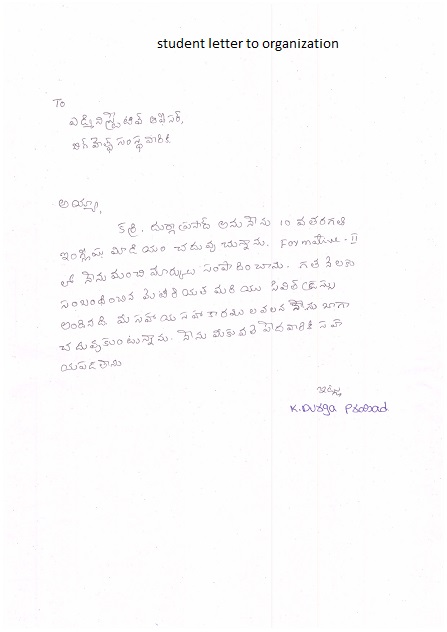 student letter to organization
To
ఎడ్మినిస్ట్రేటివ్ ఆఫీసర్,
బిగ్ హెల్ప్ సంస్థ వారికి
అయ్యా,
కర్రి. దుర్గాప్రసాద్ అను నేను 10 వ తరగతి
ఇంగ్లీషు మీడియం చదువు చున్నాను. Formative - II
లో నేను మంచి మార్కులు సంపాదించాను. గత నెలకు
సంబంధించిన మెటీరియల్ మరియు
అందినవి మీ సహాయ సహాకారముల వలన నేను బాగా
చదువుకుంటున్నాను. నేను మీకు వలె పేదవారికి సహా
యపడతాను
ఇట్లు
K. Durga Prasad